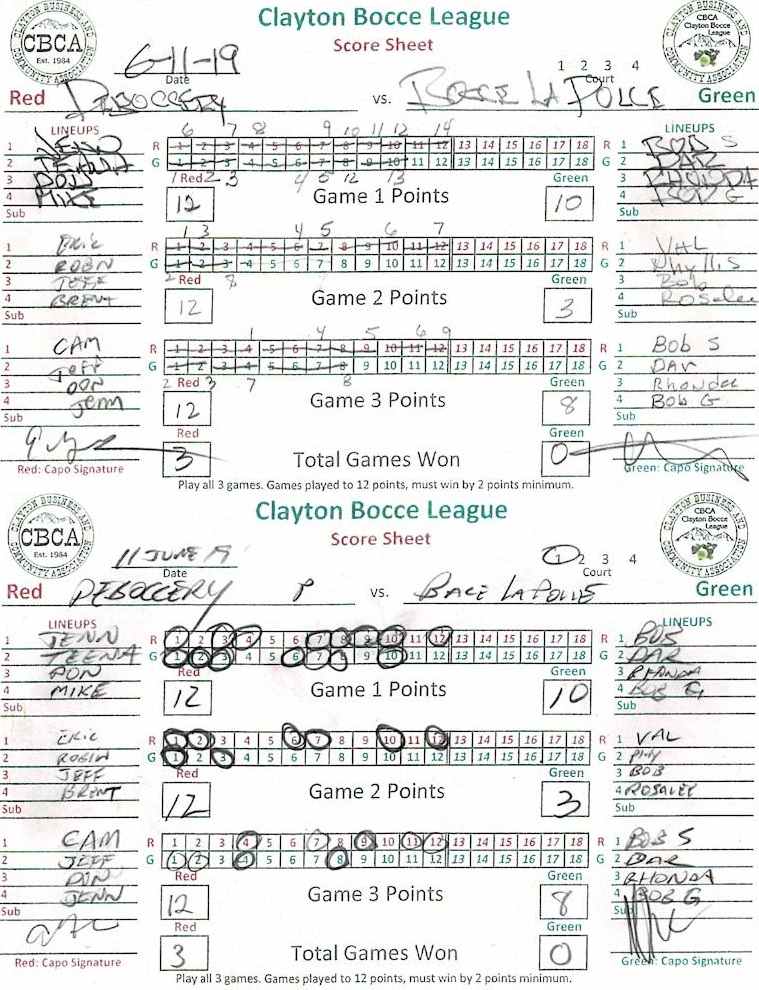 CLAYTON BUSINESS AND COMMUNITY ASSOCIATION CBCA Est. 1984
Clayton Bocce League
CBCA Clayton Bocce League
Score Sheet
6-11-19
Date
1 2 3 4
Court
Red DEBOCCERY vs. BOCCE LA POLCE Green
LINEUPS
LINEUPS
6 7 8 9 10 11 12 14
1 JENN R 1 2 3 4 5 6 7 8 9 10 11 12 13 14 15 16 17 18 R 1 BOB S
2 TEENA G 1 2 3 4 5 6 7 8 9 10 11 12 13 14 15 16 17 18 G 2 DAR
3 DON 1 Red 2 3 4 5 12 13 Green 3 RHONDA
4 MIKE 12 Game 1 Points 10 4 BOB G
Sub Sub
1 3 4 5 6 7
1 Eric R 1 2 3 4 5 6 7 8 9 10 11 12 13 14 15 16 17 18 R 1 VAL
2 ROBIN G 1 2 3 4 5 6 7 8 9 10 11 12 13 14 15 16 17 18 G 2 Phyllis
3 JEFF 2 Red 8 Green 3 Bob
4 BRENT 12 Game 2 Points 3 4 Rosalee
Sub Sub
1 4 5 6 9
1 CAM R 1 2 3 4 5 6 7 8 9 10 11 12 13 14 15 16 17 18 R 1 Bob S
2 Jeff G 1 2 3 4 5 6 7 8 9 10 11 12 13 14 15 16 17 18 G 2 DAR
3 DON 2 Red 3 7 8 Green 3 Rhonda
4 Jenn 12 Game 3 Points 8 4 Bob G
Sub Red Green Sub
3 Total Games Won 0
Red: Capo Signature Green: Capo Signature
Play all 3 games. Games played to 12 points, must win by 2 points minimum.
CLAYTON BUSINESS AND COMMUNITY ASSOCIATION CBCA Est. 1984
Clayton Bocce League
CBCA Clayton Bocce League
Score Sheet
11 JUNE 19
Date
1 2 3 4
Court
Red DEBOCCERY vs. BOCE LA POLLE Green
LINEUPS
LINEUPS
1 JENN R 1 2 3 4 5 6 7 8 9 10 11 12 13 14 15 16 17 18 R 1 BOB
2 TEENA G 1 2 3 4 5 6 7 8 9 10 11 12 13 14 15 16 17 18 G 2 DAR
3 DON Red Green 3 RHONDA
4 MIKE 12 Game 1 Points 10 4 BOB G
Sub Sub
1 ERIC R 1 2 3 4 5 6 7 8 9 10 11 12 13 14 15 16 17 18 R 1 VAL
2 ROBIN G 1 2 3 4 5 6 7 8 9 10 11 12 13 14 15 16 17 18 G 2
3 JEFF Red Green 3 BOB
4 BRENT 12 Game 2 Points 3 4 ROSALEE
Sub Sub
1 CAM R 1 2 3 4 5 6 7 8 9 10 11 12 13 14 15 16 17 18 R 1 BOB S
2 JEFF G 1 2 3 4 5 6 7 8 9 10 11 12 13 14 15 16 17 18 G 2 DAR
3 DON Red Green 3 RHONDA
4 JENN 12 Game 3 Points 8 4 BOB G
Sub Red Green Sub
3 Total Games Won 0
Red: Capo Signature Green: Capo Signature
Play all 3 games. Games played to 12 points, must win by 2 points minimum.